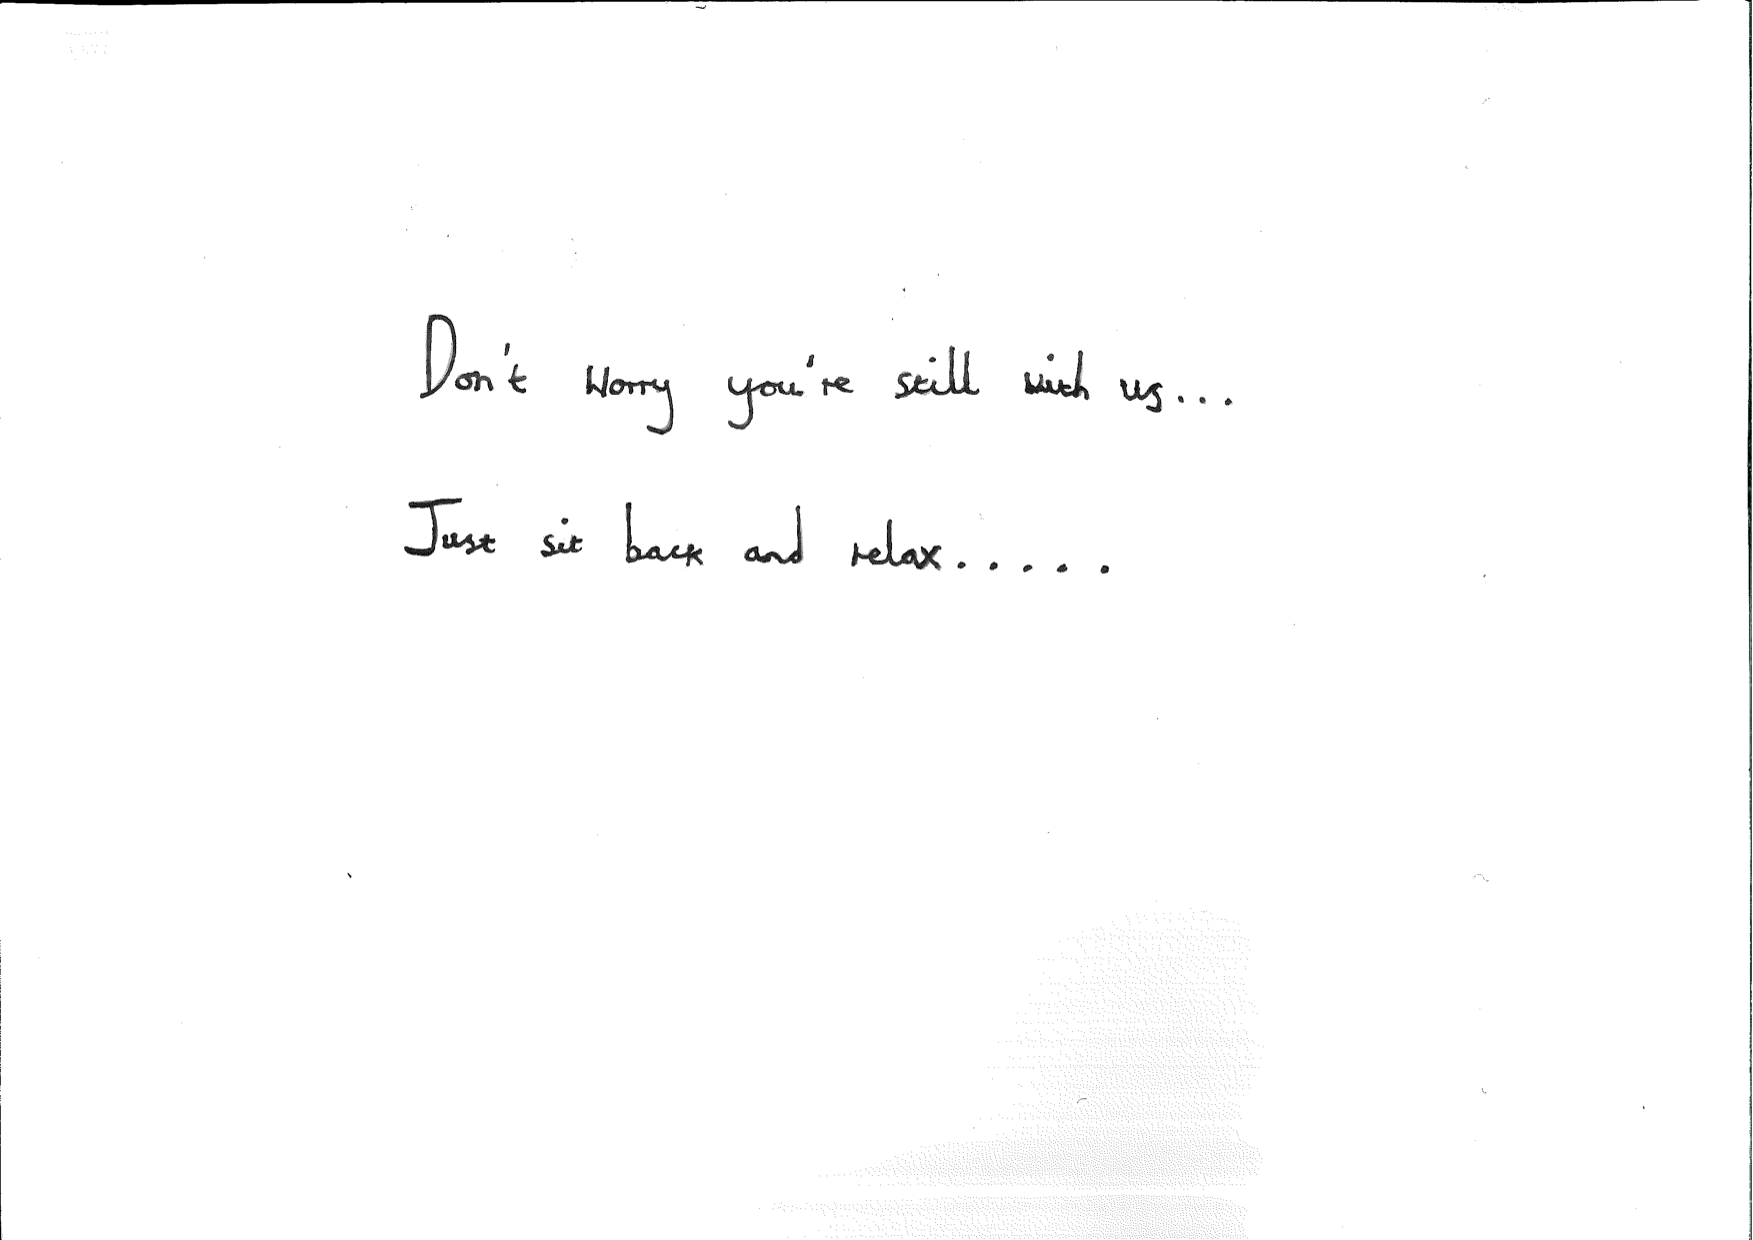 Don't worry you're still with us...
Just sit back and relax.....